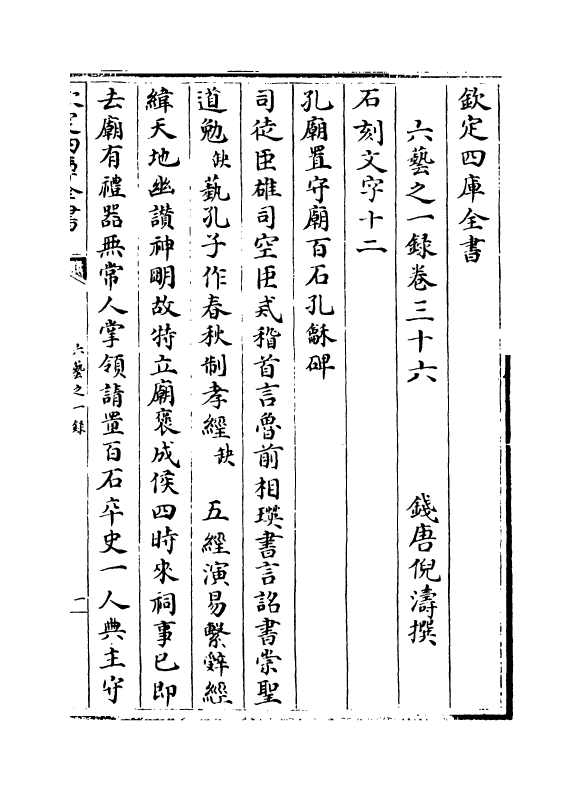 欽定四庫全書
六藝之一錄卷三十六 錢唐倪濤撰
石刻文字十二
孔廟置守廟百石孔龢碑
司徒臣雄司空臣戒稽首言魯前相瑛書言詔書崇聖
道勉缺藝孔子作春秋制孝經缺 五經演易繫辭經
緯天地幽讚神明故特立廟褒成侯四時來祠事已即
去廟有禮器無常人掌領請置百石卒史一人典主守
欽定四庫全書
六藝之一錄
一